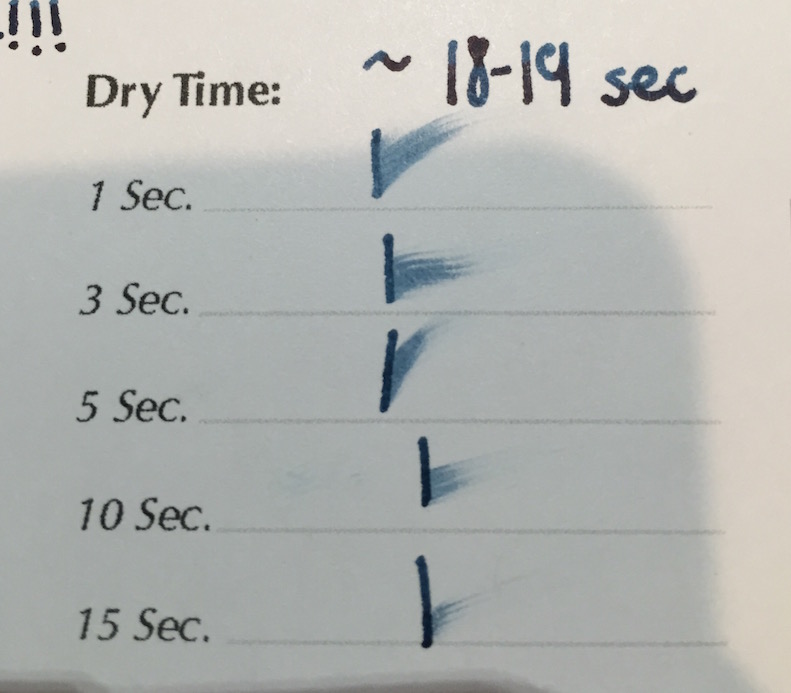 !!!
Dry Time: ~ 18-19 sec
1 Sec.
3 Sec.
5 Sec.
10 Sec.
15 Sec.